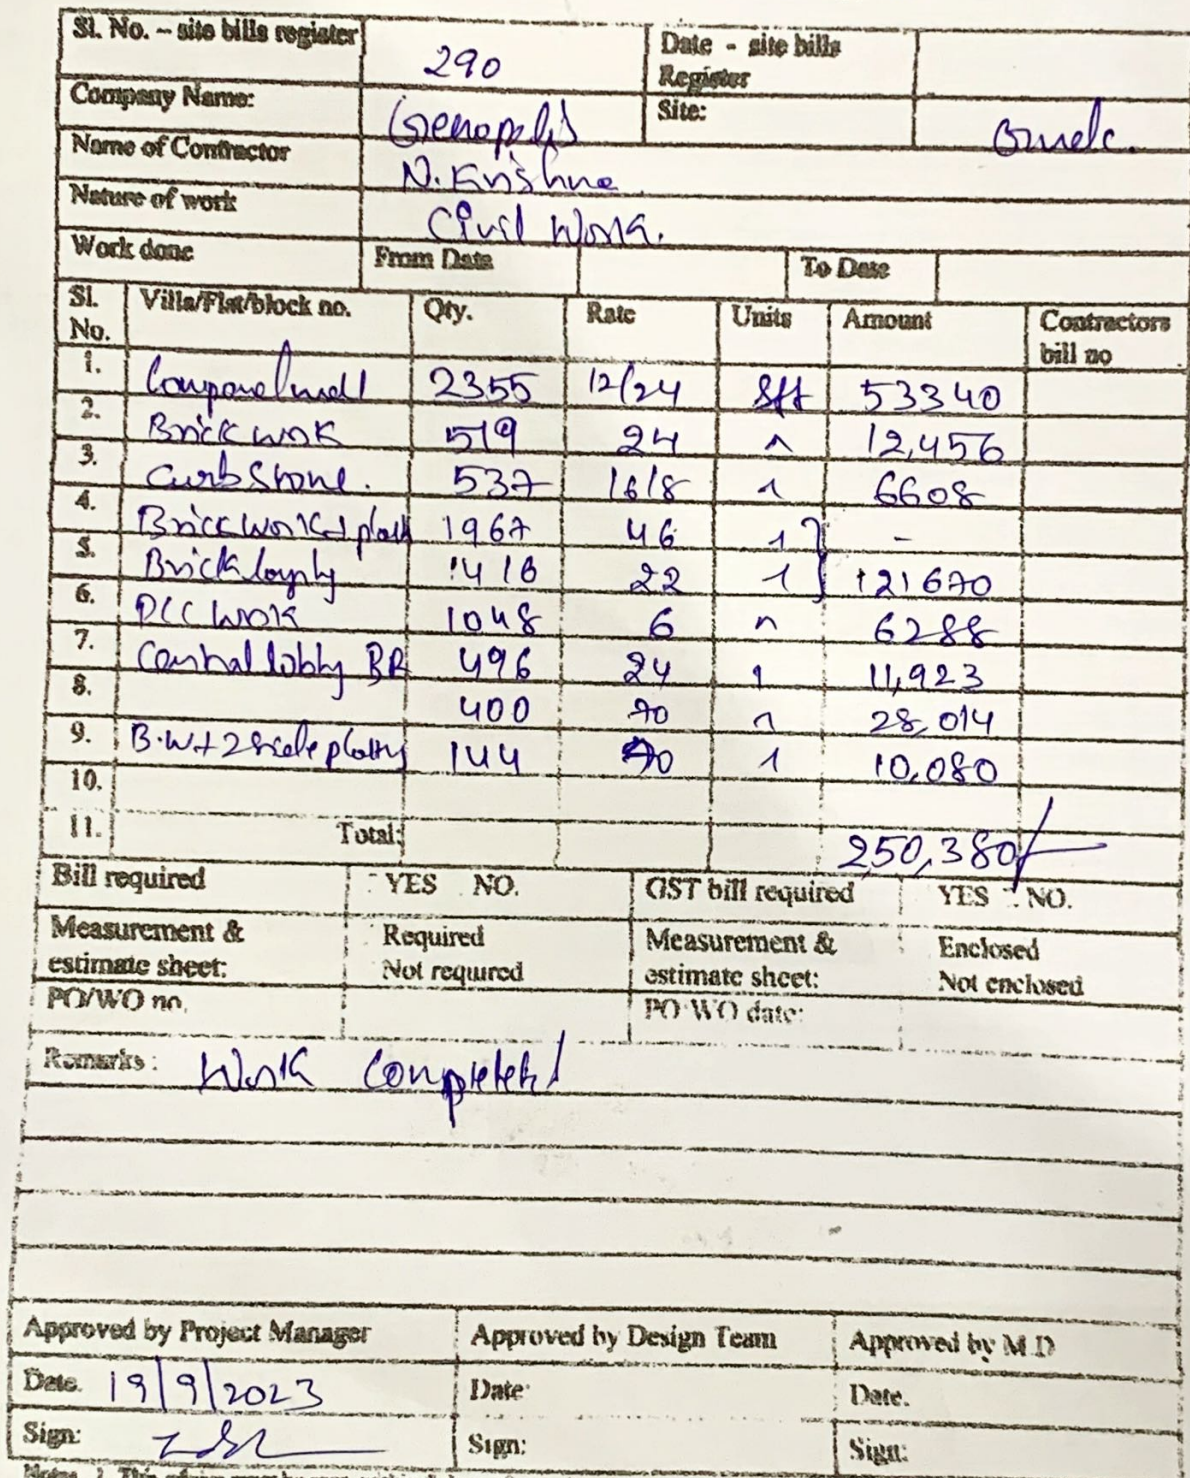 Sl. No. – site bills register 290 Date - site bills Register
Company Name: Genopolis Site:
Name of Contractor N. Krishna
Nature of work Civil Work.
Work done From Date To Date
Sl. No. Villa/Flat/block no. Qty. Rate Units Amount Contractors bill no
1. 2355 12/24 Sft 53340
2. Brick work 519 24 " 12,456
3. Curb Stone. 537 16/8 " 6608
4. Brick work + 1967 46 " -
5. Brick 1418 22 " 121670
6. PCC work 1048 6 " 6288
7. Central lobby BR 496 24 " 11,923
8. 400 70 " 28,014
9. B.W + 2 side 144 70 " 10,080
10.
11. Total: 250,380/-
Bill required YES NO. GST bill required YES NO.
Measurement & estimate sheet: Required Not required Measurement & estimate sheet: Enclosed Not enclosed
PO/WO no. PO/WO date:
Remarks : Work Completed
Approved by Project Manager Approved by Design Team Approved by M.D
Date. 19/9/2023 Date: Date.
Sign: Sign: Sign: